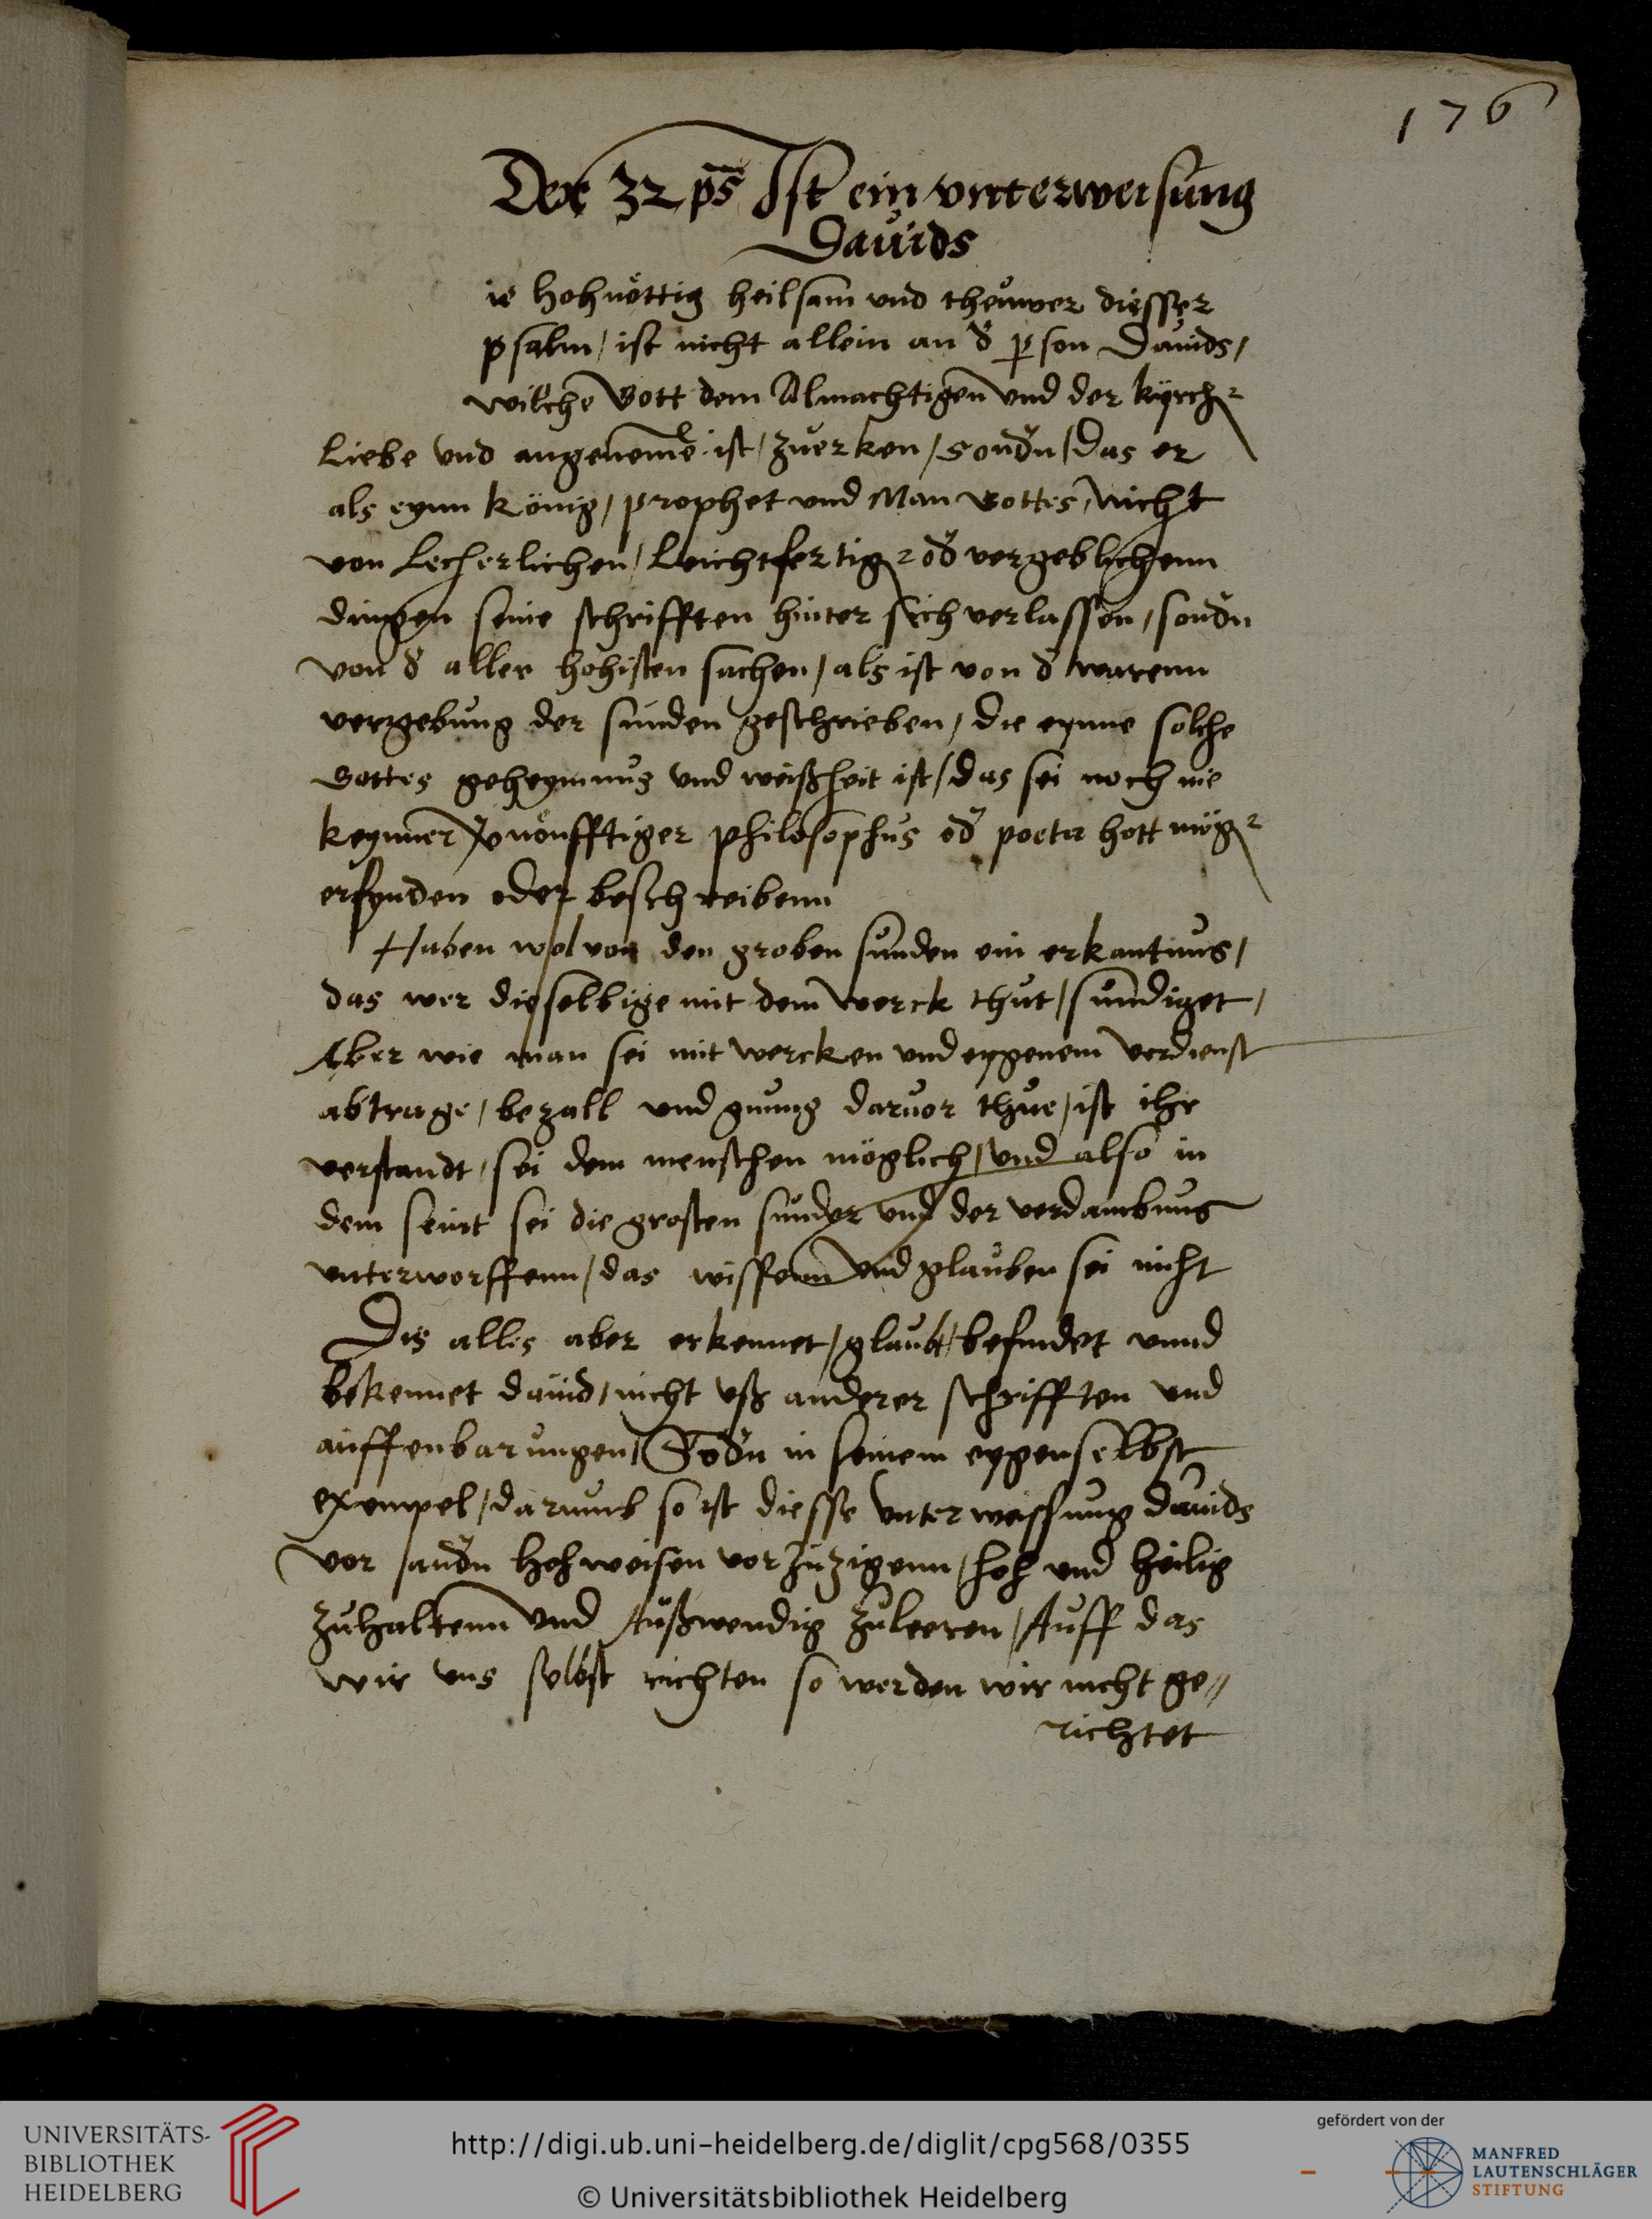 176
Der 32 ps Ist ein vnterweisung
Dauids
ie hohnöttig heilsam vnd theuwer diesser
psalm, ist nicht allein an d person Dauids,
wilche Gott dem Almachtigen vnd der kyrch
liebe vnd angeneme ist, zuerken, sondn, das er
als eynn könig, prophet vnd Man Gottes, nicht
von lecherlichen, leichtfertig od vergeblichenn
dingen seine schrifften hinter sich verlassen, sondn
von d aller höhisten sachen, als ist von d warenn
vergebung der sunden geschrieben, die eynne solche
Gottes geheymnus vnd weißheit ist, das sei noch nie
keynner vnönfftiger philosophus od poeta hott mög
erfynden oder beschreibenn
Haben wol von den groben sunden ein erkantnus,
das wer dieselbige mit dem werck thut, sundiget,
Aber wie man sei mit wercken vnd eygenem verdienst
abtrage, bezall vnd gnung daruor thue, ist ihr
verstandt, sei dem menschen möglich, vnd also in
dem seint sei die grosten sunder vnd der verdambnus
vnterworffenn, das wissenn vnd glauben sei nicht
Dis alles aber erkennet, glaubt, befindet vnnd
bekennet dauid, nicht vß anderer schrifften vnd
auffenbarungen, Sodn in seinem eygenselbst
exempel, darumb so ist diesse vnterweissung dauids
vor andn hohweisen vorzuzigenn, hoh vnd heilig
zuhaltenn vnd Außwendig zuleeren, Auff das
wir vns selbst richten so werden wir nicht ge„
richtet
UNIVERSITÄTS-
BIBLIOTHEK
HEIDELBERG
http://digi.ub.uni-heidelberg.de/diglit/cpg568/0355
© Universitätsbibliothek Heidelberg
gefördert von der
MANFRED
LAUTENSCHLÄGER
STIFTUNG